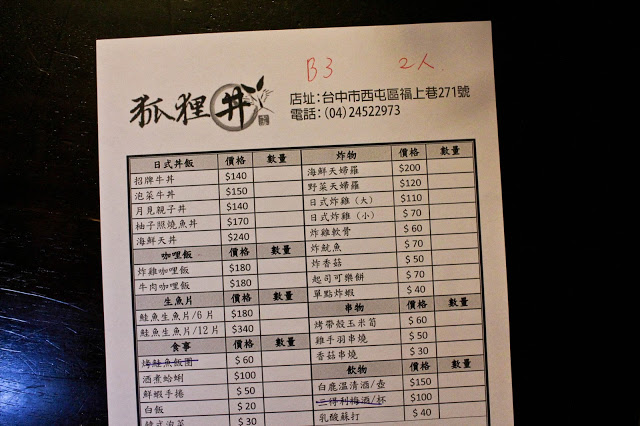 B3 2人
狐狸丼
店址：台中市西屯區福上巷271號
電話：(04)24522973
日式丼飯 價格 數量
招牌牛丼 $140
泡菜牛丼 $150
月見親子丼 $140
柚子照燒魚丼 $170
海鮮天丼 $240
咖哩飯 價格 數量
炸雞咖哩飯 $180
牛肉咖哩飯 $180
生魚片 價格 數量
鮭魚生魚片/6片 $180
鮭魚生魚片/12片 $340
食事 價格 數量
烤鮭魚飯糰 $ 60
酒煮蛤蜊 $100
鮮蝦手捲 $ 50
白飯 $ 20
韓式泡菜 $ 30
炸物 價格 數量
海鮮天婦羅 $200
野菜天婦羅 $120
日式炸雞（大） $110
日式炸雞（小） $ 70
炸雞軟骨 $ 60
炸魷魚 $ 70
炸香菇 $ 50
起司可樂餅 $ 70
單點炸蝦 $ 40
串物 價格 數量
烤帶殼玉米筍 $ 60
雞手羽串燒 $ 50
香菇串燒 $ 30
飲物 價格 數量
白鹿溫清酒/壺 $150
三得利梅酒/杯 $100
乳酸蘇打 $ 40